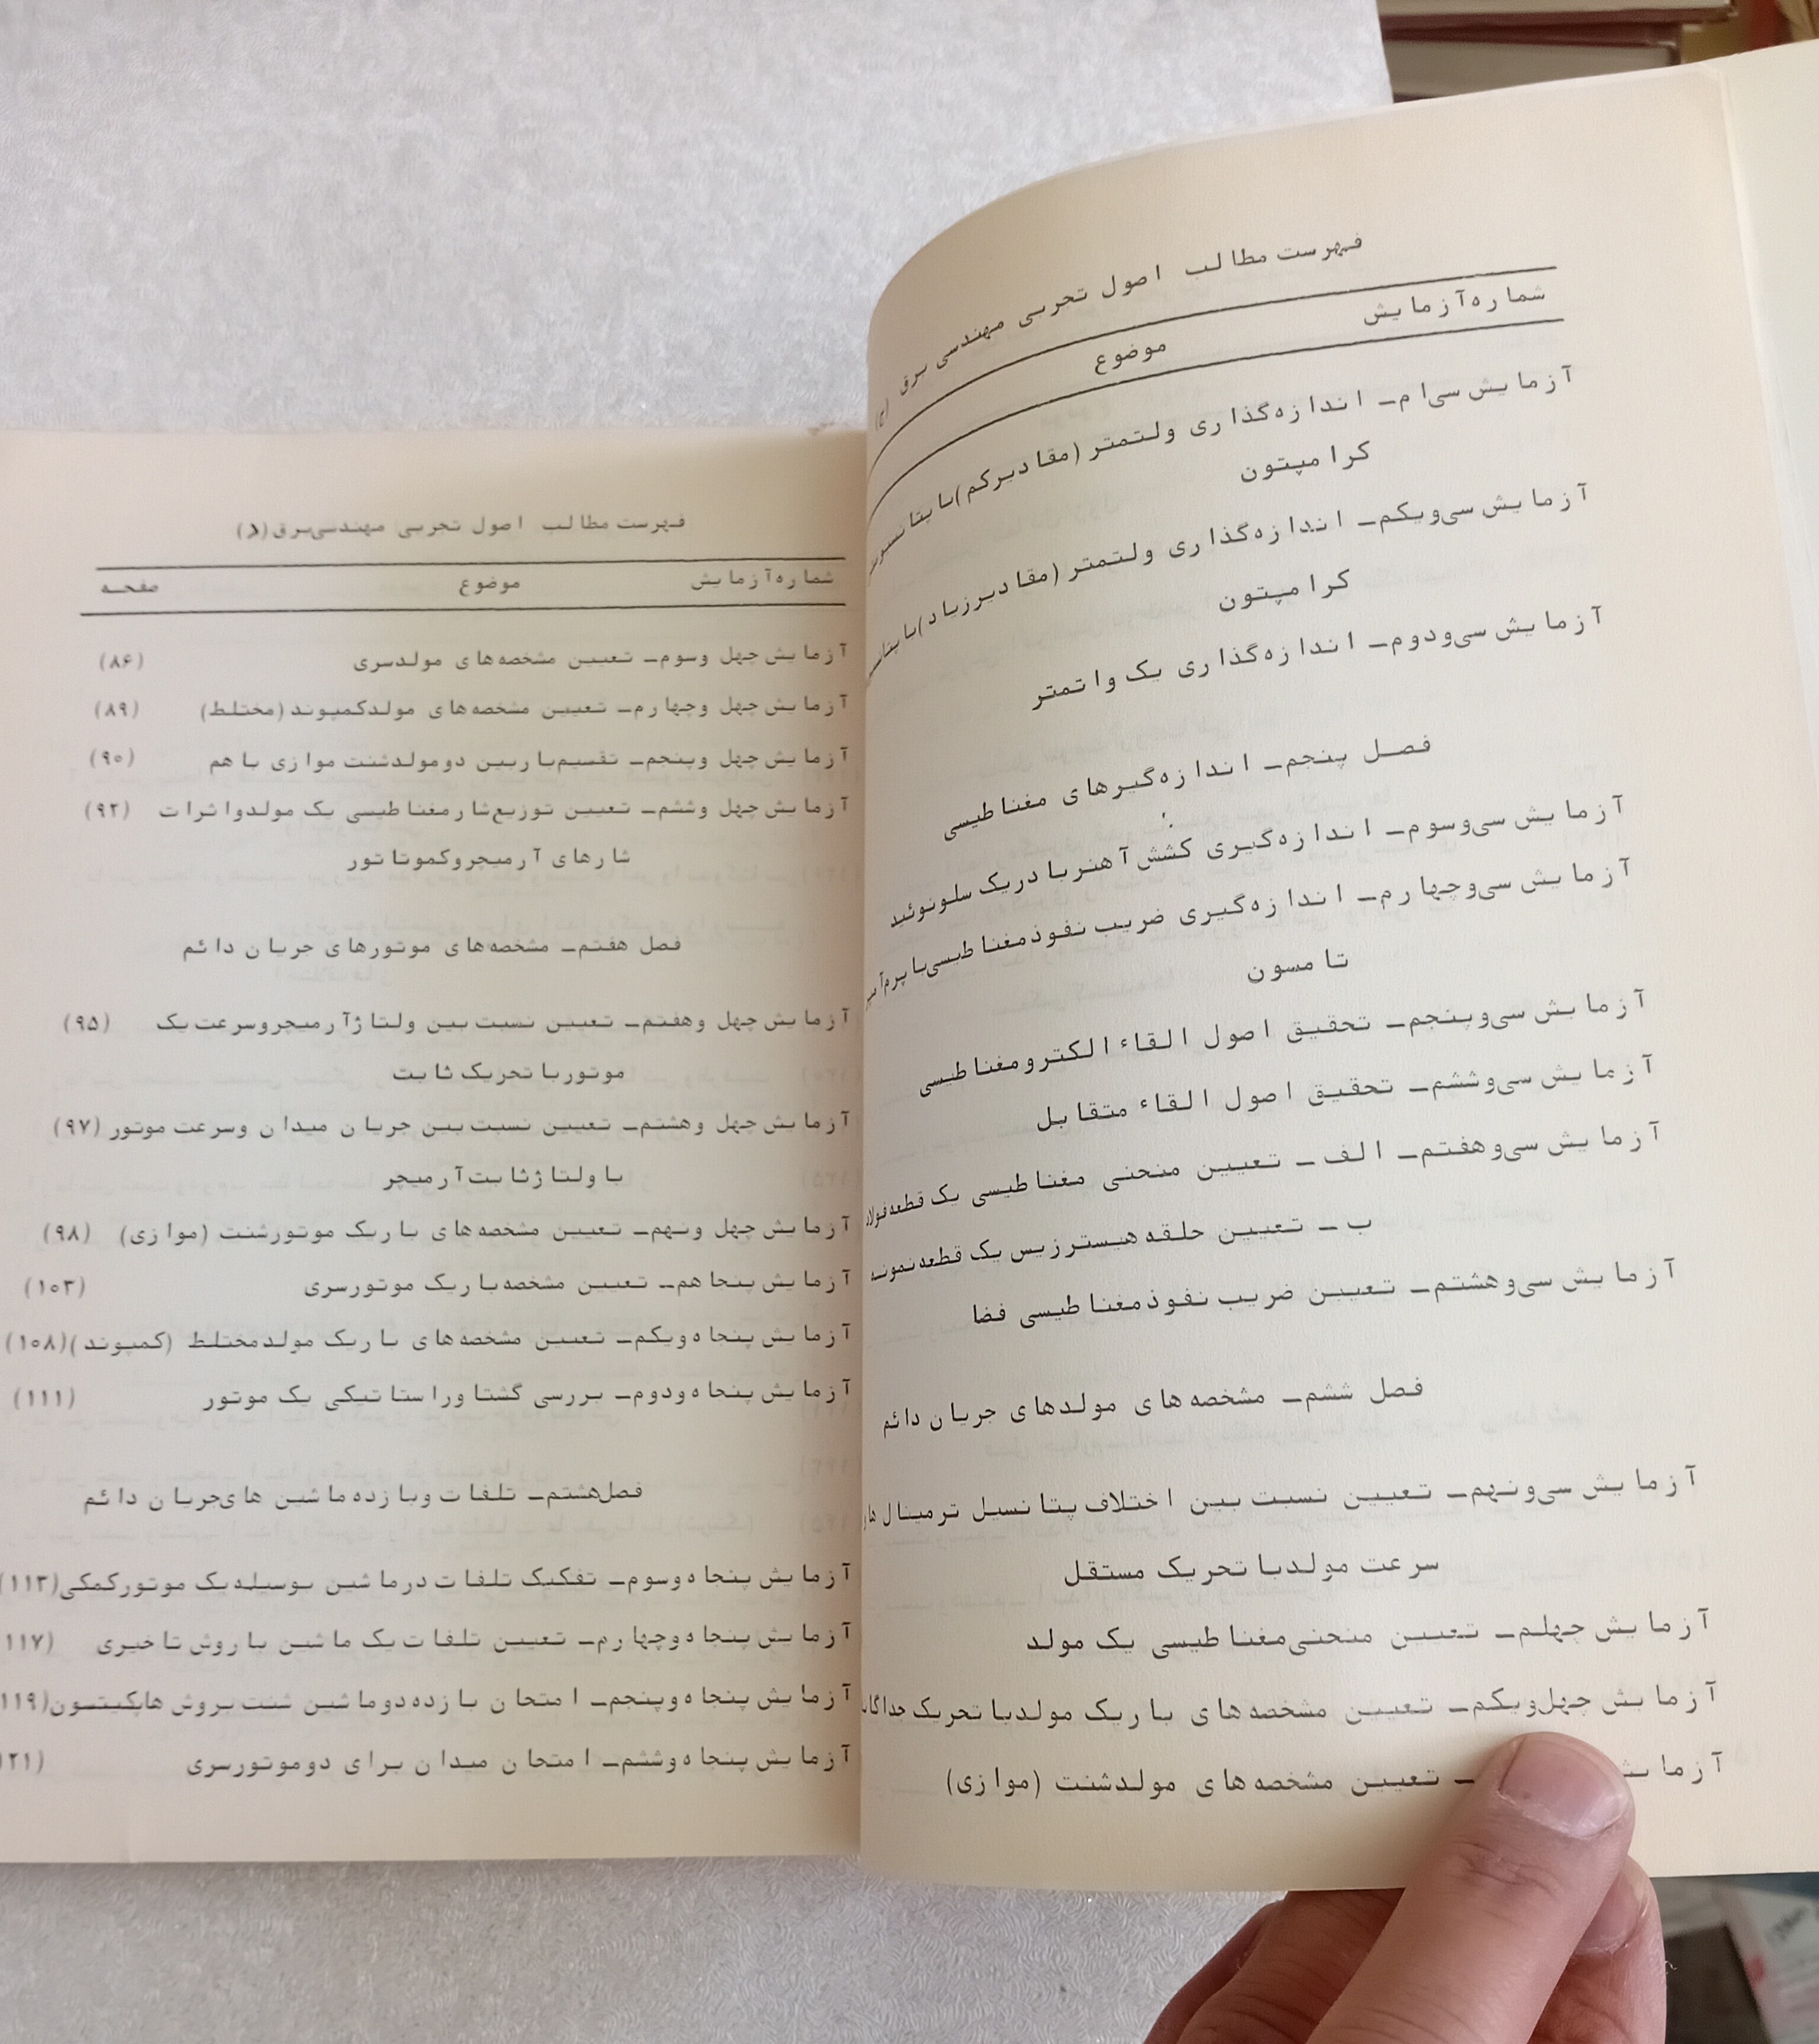 فهرست مطالب اصول تجربی مهندسی برق (ج)
شماره آزمایش موضوع
آزمایش سی‌ام_ اندازه‌گذاری ولتمتر (مقادیرکم) با
کرامپتون
آزمایش سی‌ویکم_ اندازه‌گذاری ولتمتر (مقادیرزیاد) با
کرامپتون
آزمایش سی‌ودوم_ اندازه‌گذاری یک واتمتر
فصل پنجم_ اندازه‌گیرهای مغناطیسی
آزمایش سی‌وسوم_ اندازه‌گیری کشش آهنربا دریک سلونوئید
آزمایش سی‌وچهارم_ اندازه‌گیری ضریب نفوذمغناطیسی‌با
تامسون
آزمایش سی‌وپنجم_ تحقیق اصول القاء الکترومغناطیسی
آزمایش سی‌وششم_ تحقیق اصول القاء متقابل
آزمایش سی‌وهفتم_ الف _ تعیین منحنی مغناطیسی یک قطعه
ب _ تعیین حلقه هیسترزیس یک قطعه‌نمونه
آزمایش سی‌وهشتم_ تعیین ضریب نفوذمغناطیسی فضا
فصل ششم_ مشخصه‌های مولدهای جریان دائم
آزمایش سی‌ونهم_ تعیین نسبت بین اختلاف پتانسیل ترمینال
سرعت مولدبا تحریک مستقل
آزمایش چهلم_ تعیین منحنی‌مغناطیسی یک مولد
آزمایش چهل‌ویکم_ تعیین مشخصه‌های باریک مولدبا تحریک
_ تعیین مشخصه‌های مولدشنت (موازی)
فهرست مطالب اصول تجربی مهندسی‌برق(د)
شماره آزمایش موضوع صفحه
آزمایش چهل وسوم_ تعیین مشخصه‌های مولدسری (۸۶)
آزمایش چهل وچهارم_ تعیین مشخصه‌های مولدکمپوند(مختلط) (۸۹)
آزمایش چهل وپنجم_ تقسیم‌باربین دومولدشنت موازی باهم (۹۰)
آزمایش چهل وششم_ تعیین توزیع‌شارمغناطیسی یک مولدواثرات (۹۲)
شارهای آرمیچروکموتاتور
فصل هفتم_ مشخصه‌های موتورهای جریان دائم
آزمایش چهل وهفتم_ تعیین نسبت بین ولتاژآرمیچروسرعت یک (۹۵)
موتوربا تحریک ثابت
آزمایش چهل وهشتم_ تعیین نسبت بین جریان میدان وسرعت موتور (۹۷)
با ولتاژثابت آرمیچر
آزمایش چهل ونهم_ تعیین مشخصه‌های باریک موتورشنت (موازی) (۹۸)
آزمایش پنجاهم_ تعیین مشخصه‌باریک موتورسری (۱۰۳)
آزمایش پنجاه ویکم_ تعیین مشخصه‌های باریک مولدمختلط (کمپوند)(۱۰۸)
آزمایش پنجاه ودوم_ بررسی گشتاوراستاتیکی یک موتور (۱۱۱)
فصل‌هشتم_ تلفات وبازده ماشین های‌جریان دائم
آزمایش پنجاه وسوم_ تفکیک تلفات درماشین بوسیله یک موتورکمکی(۱۱۳)
آزمایش پنجاه وچهارم_ تعیین تلفات یک ماشین باروش تاخیری ۱۱۷)
آزمایش پنجاه وپنجم_ امتحان بازده دوماشین شنت بروش هاپکینسون(۱۱۹
آزمایش پنجاه وششم_ امتحان میدان برای دوموتورسری ۲۱)